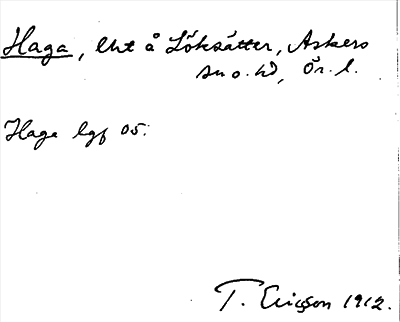 Haga, lht å Löksätter, Askers
sn o. hd, Ör. l.
Haga lgf 05.
T. Ericson 1912.